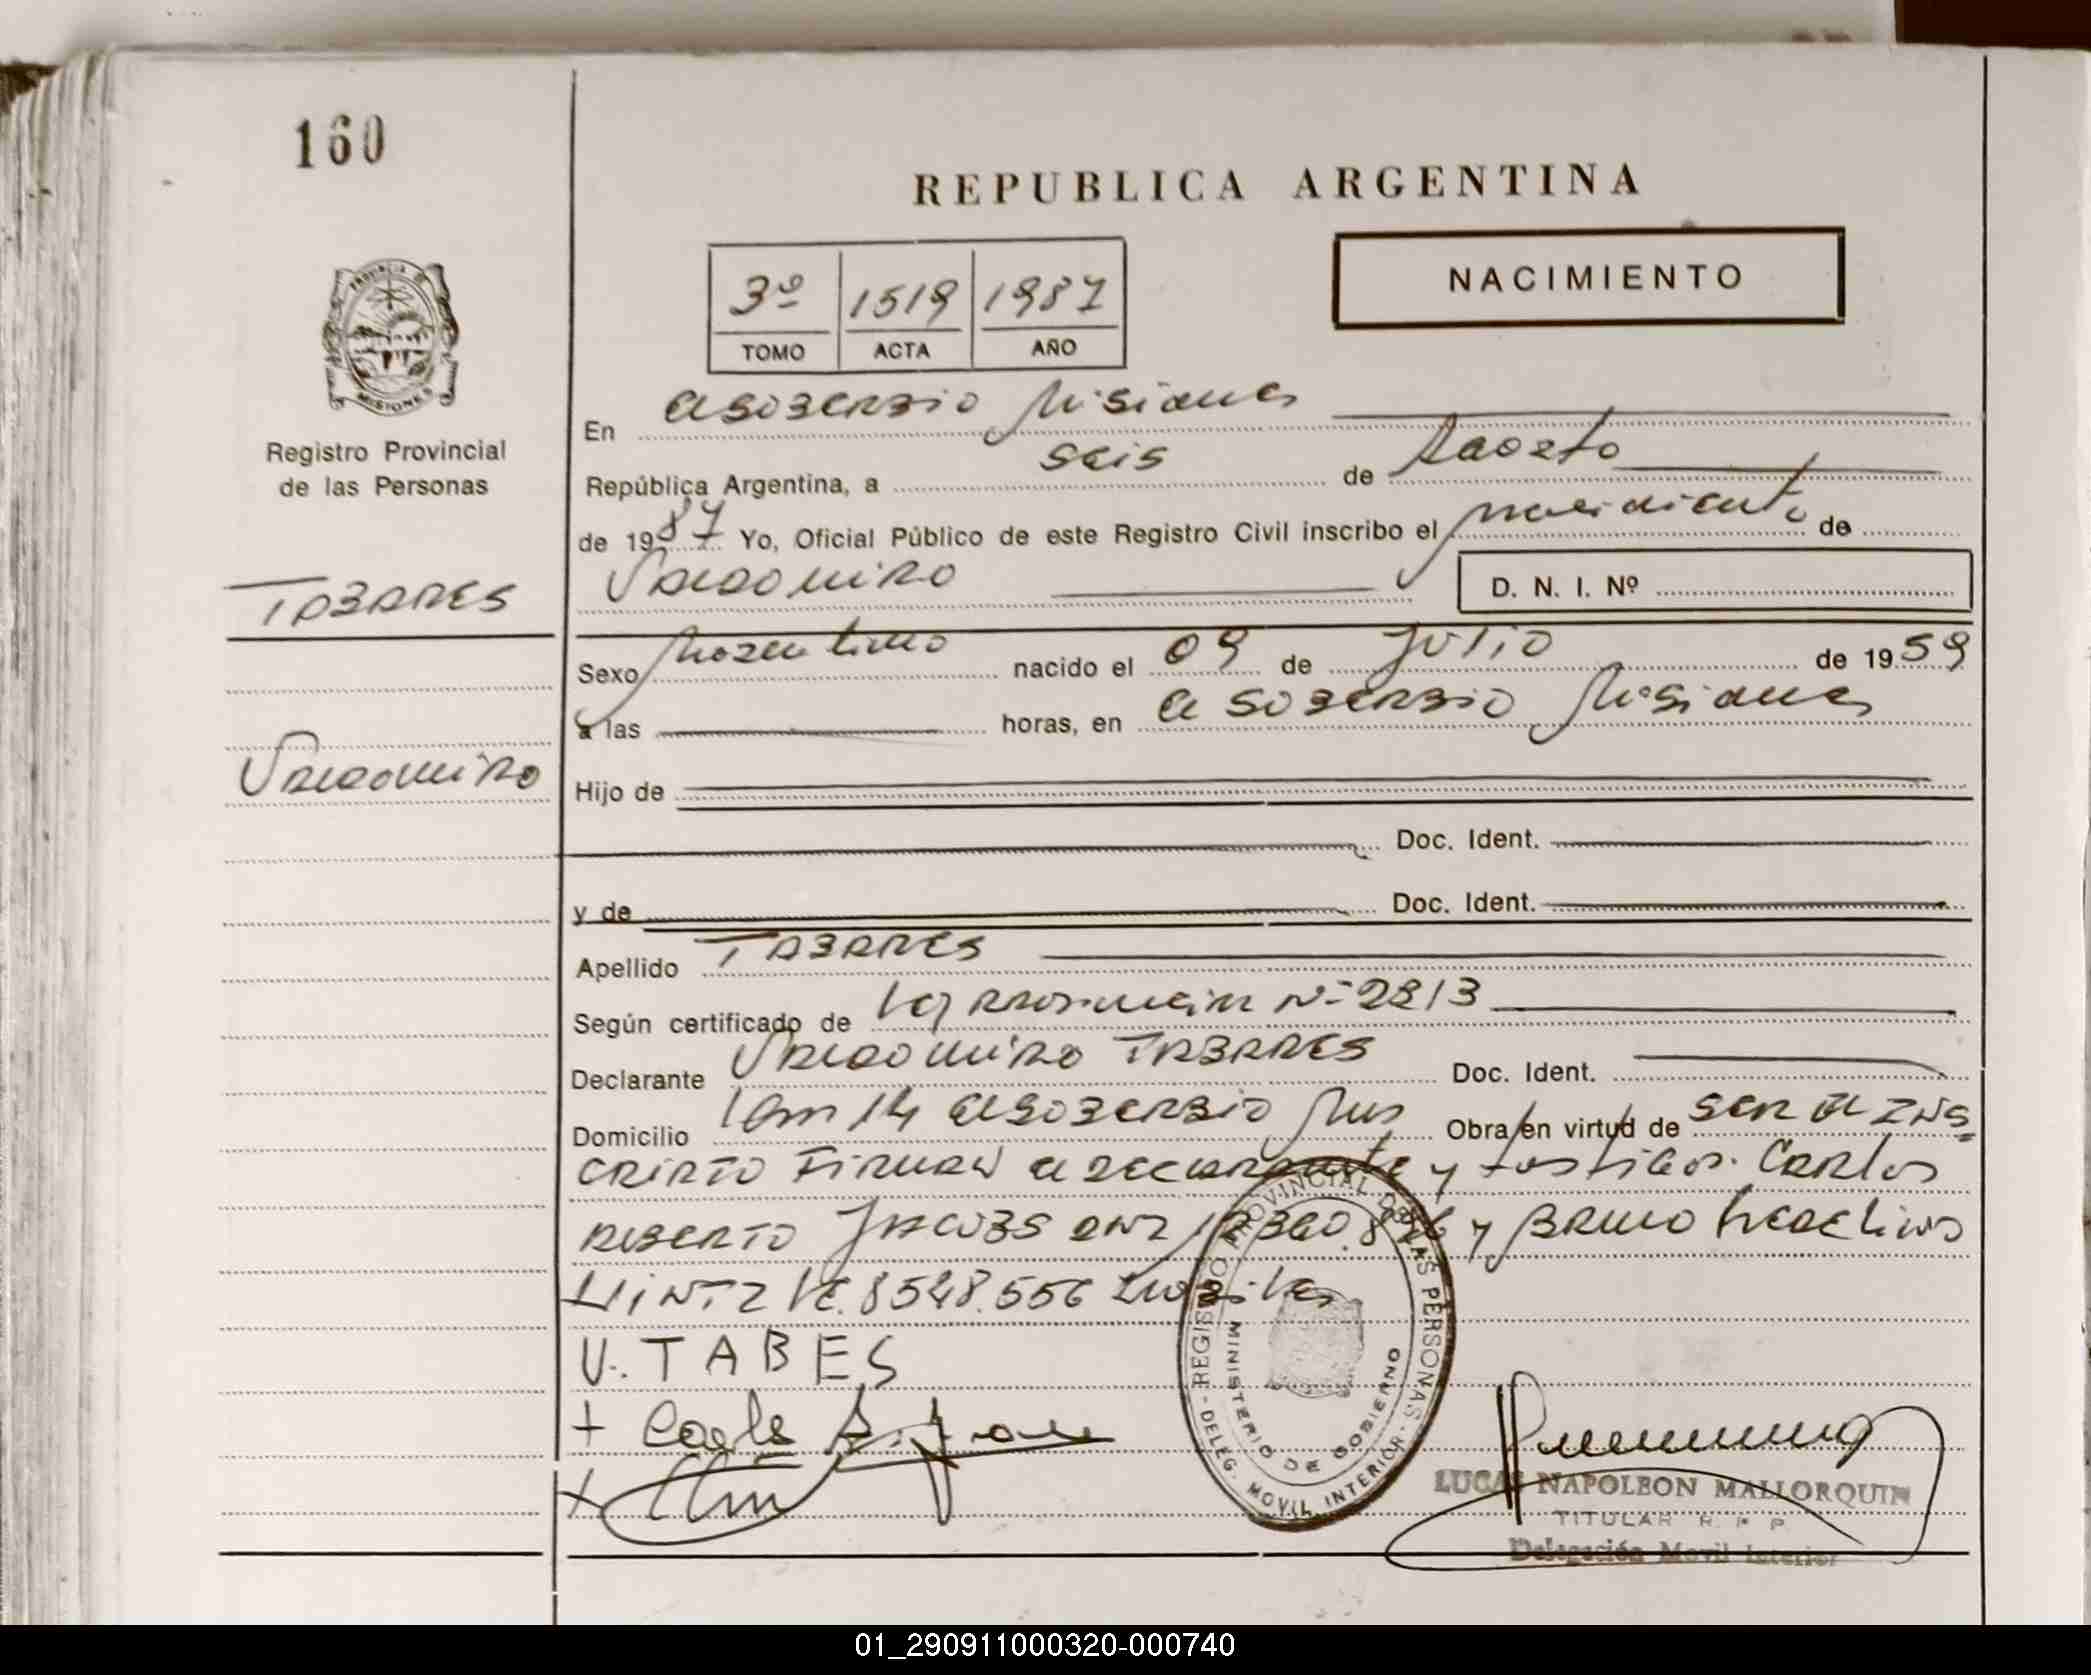 160
REPUBLICA ARGENTINA
NACIMIENTO
3º 1519 1987
TOMO ACTA AÑO
PROVINCIA DE MISIONES
Registro Provincial
de las Personas
En Elsoberbio Misiones
República Argentina, a seis de Agosto
de 1987 Yo, Oficial Público de este Registro Civil inscribo el nacimiento de
Valdomiro D. N. I. Nº
TABARES
Sexo Masculino nacido el 09 de Julio de 1959
a las horas, en El Soberbio Misiones
Valdomiro
Hijo de
Doc. Ident.
y de Doc. Ident.
Apellido TABARES
Según certificado de Nº 2813
Declarante Valdomiro TABARES Doc. Ident.
Domicilio Km 14 Elsoberbio Mnes Obra en virtud de ser el Ins
cripto Firman el declarante y testigos. Carlos
Roberto Jacobs DNI y Bruno
Hintz 8548.556
V. TABES
+
+
REGISTRO PROVINCIAL DE LAS PERSONAS
DELEG. MOVIL INTERIOR
MINISTERIO DE GOBIERNO
LUCAS NAPOLEON MALLORQUIN
TITULAR R. P. P.
Delegación Movil Interior
01_290911000320-000740